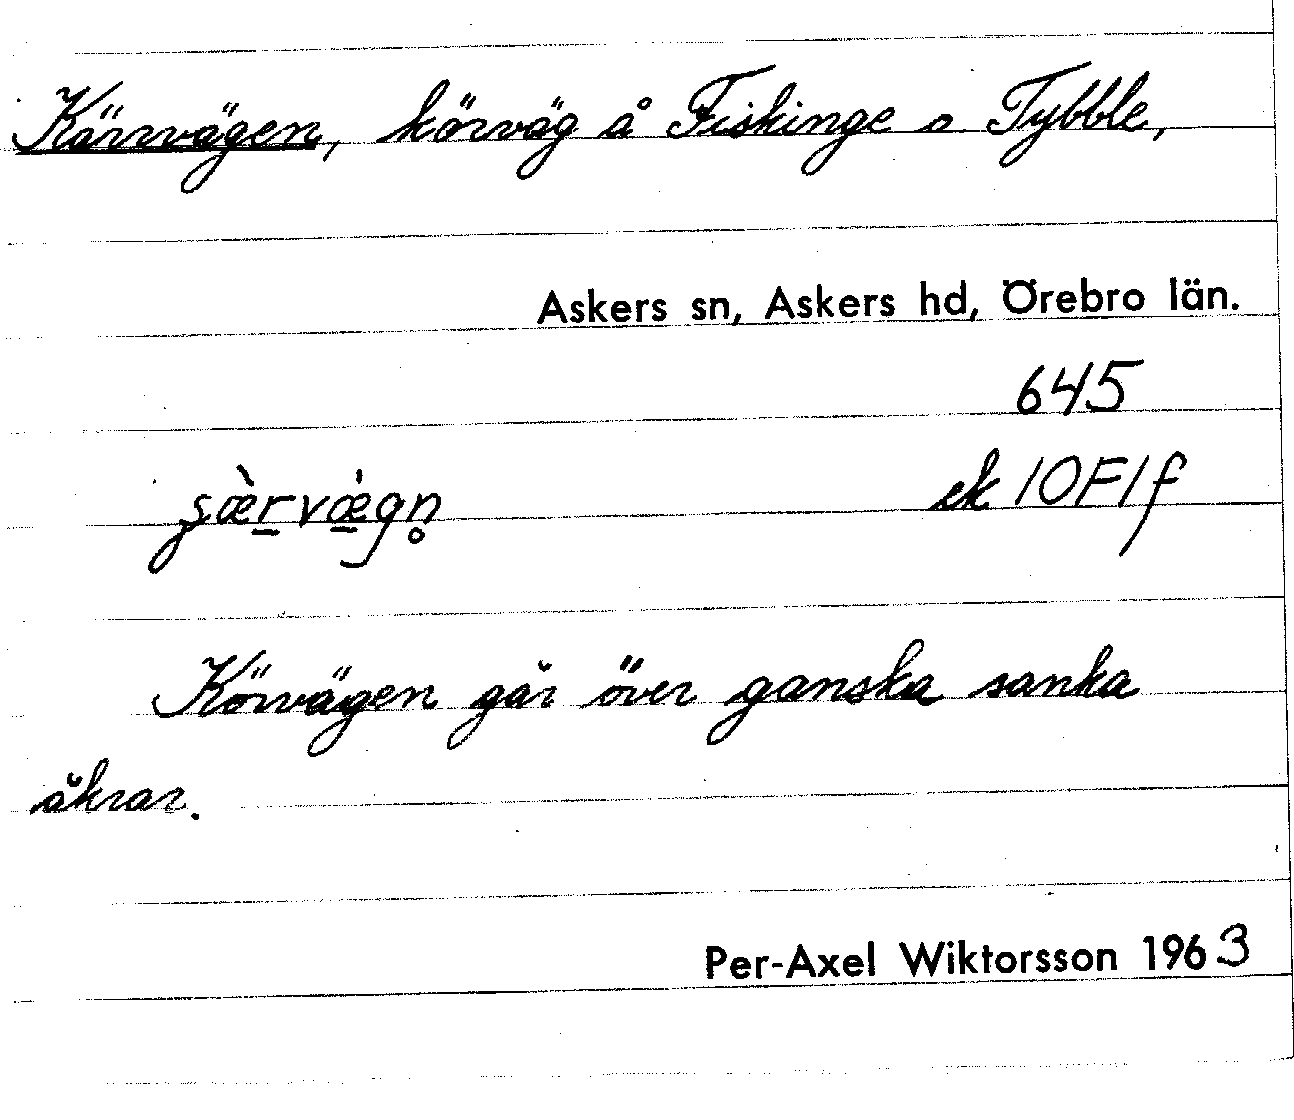 Kärrvägen, körväg å Fiskinge o Tybble,
Askers sn, Askers hd, Örebro län.
645
ʂæ̀rvæ̀gn̥ ek 10F1f
Körvägen går över ganska sanka
åkrar.
Per-Axel Wiktorsson 1963